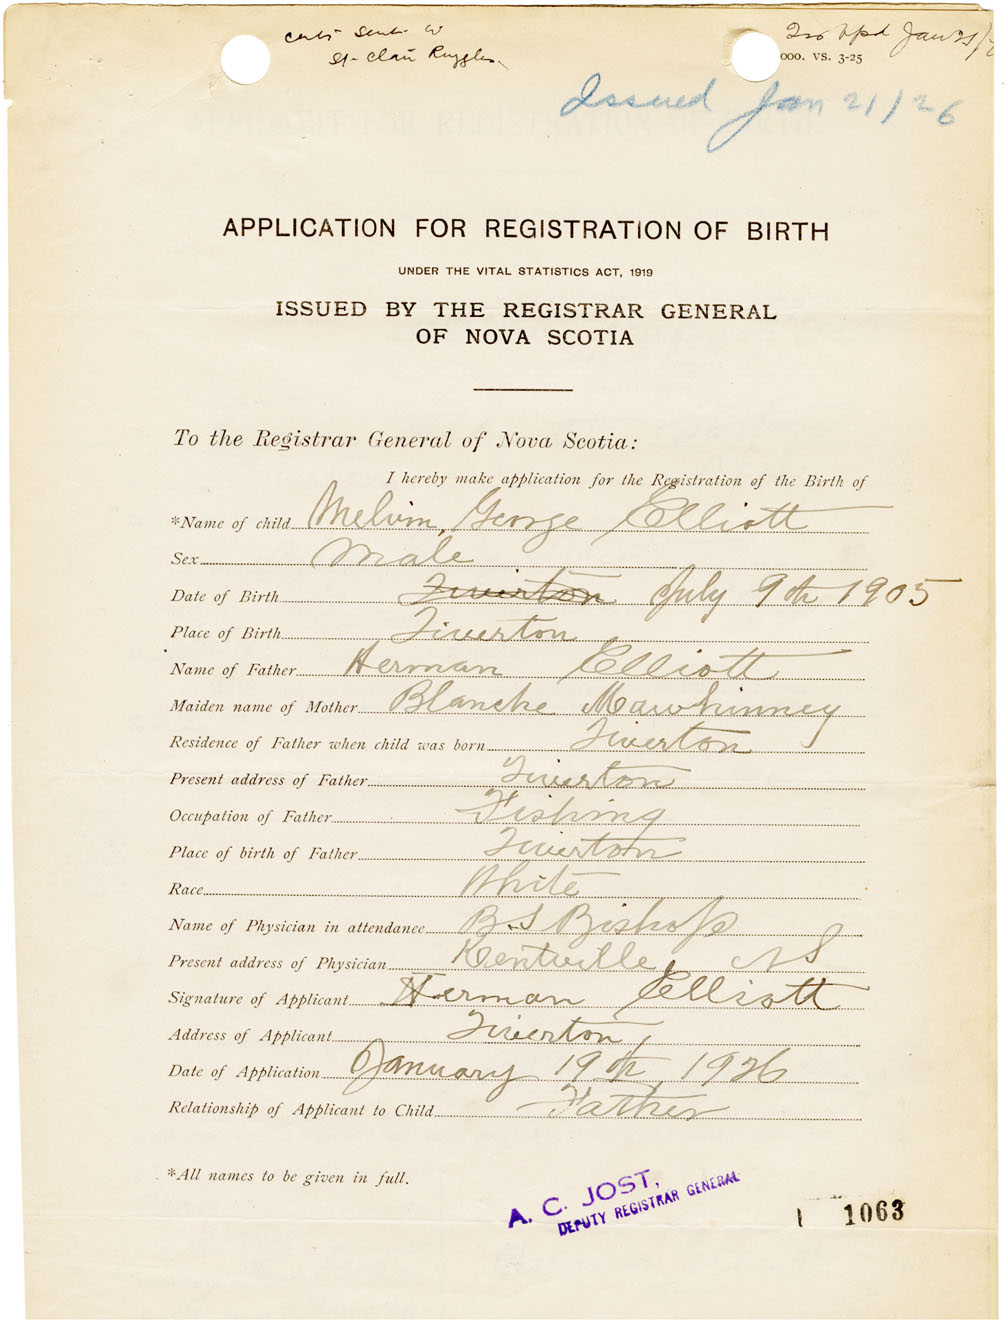 Certi sent to
St. Clair Ruggles.
Jan 21/
000. VS. 3-25
Issued Jan 21/26
APPLICATION FOR REGISTRATION OF BIRTH
UNDER THE VITAL STATISTICS ACT, 1919
ISSUED BY THE REGISTRAR GENERAL
OF NOVA SCOTIA
To the Registrar General of Nova Scotia:
I hereby make application for the Registration of the Birth of
*Name of child Melvin, George Elliott
Sex Male
Date of Birth Tiverton July 9th 1905
Place of Birth Tiverton
Name of Father Herman Elliott
Maiden name of Mother Blanche Mawhinney
Residence of Father when child was born Tiverton
Present address of Father Tiverton
Occupation of Father Fishing
Place of birth of Father Tiverton
Race White
Name of Physician in attendance B.S Bishop
Present address of Physician Kentville, NS
Signature of Applicant Herman Elliott
Address of Applicant Tiverton,
Date of Application January 19th, 1926
Relationship of Applicant to Child Father
*All names to be given in full.
A. C. JOST,
DEPUTY REGISTRAR GENERAL
1063